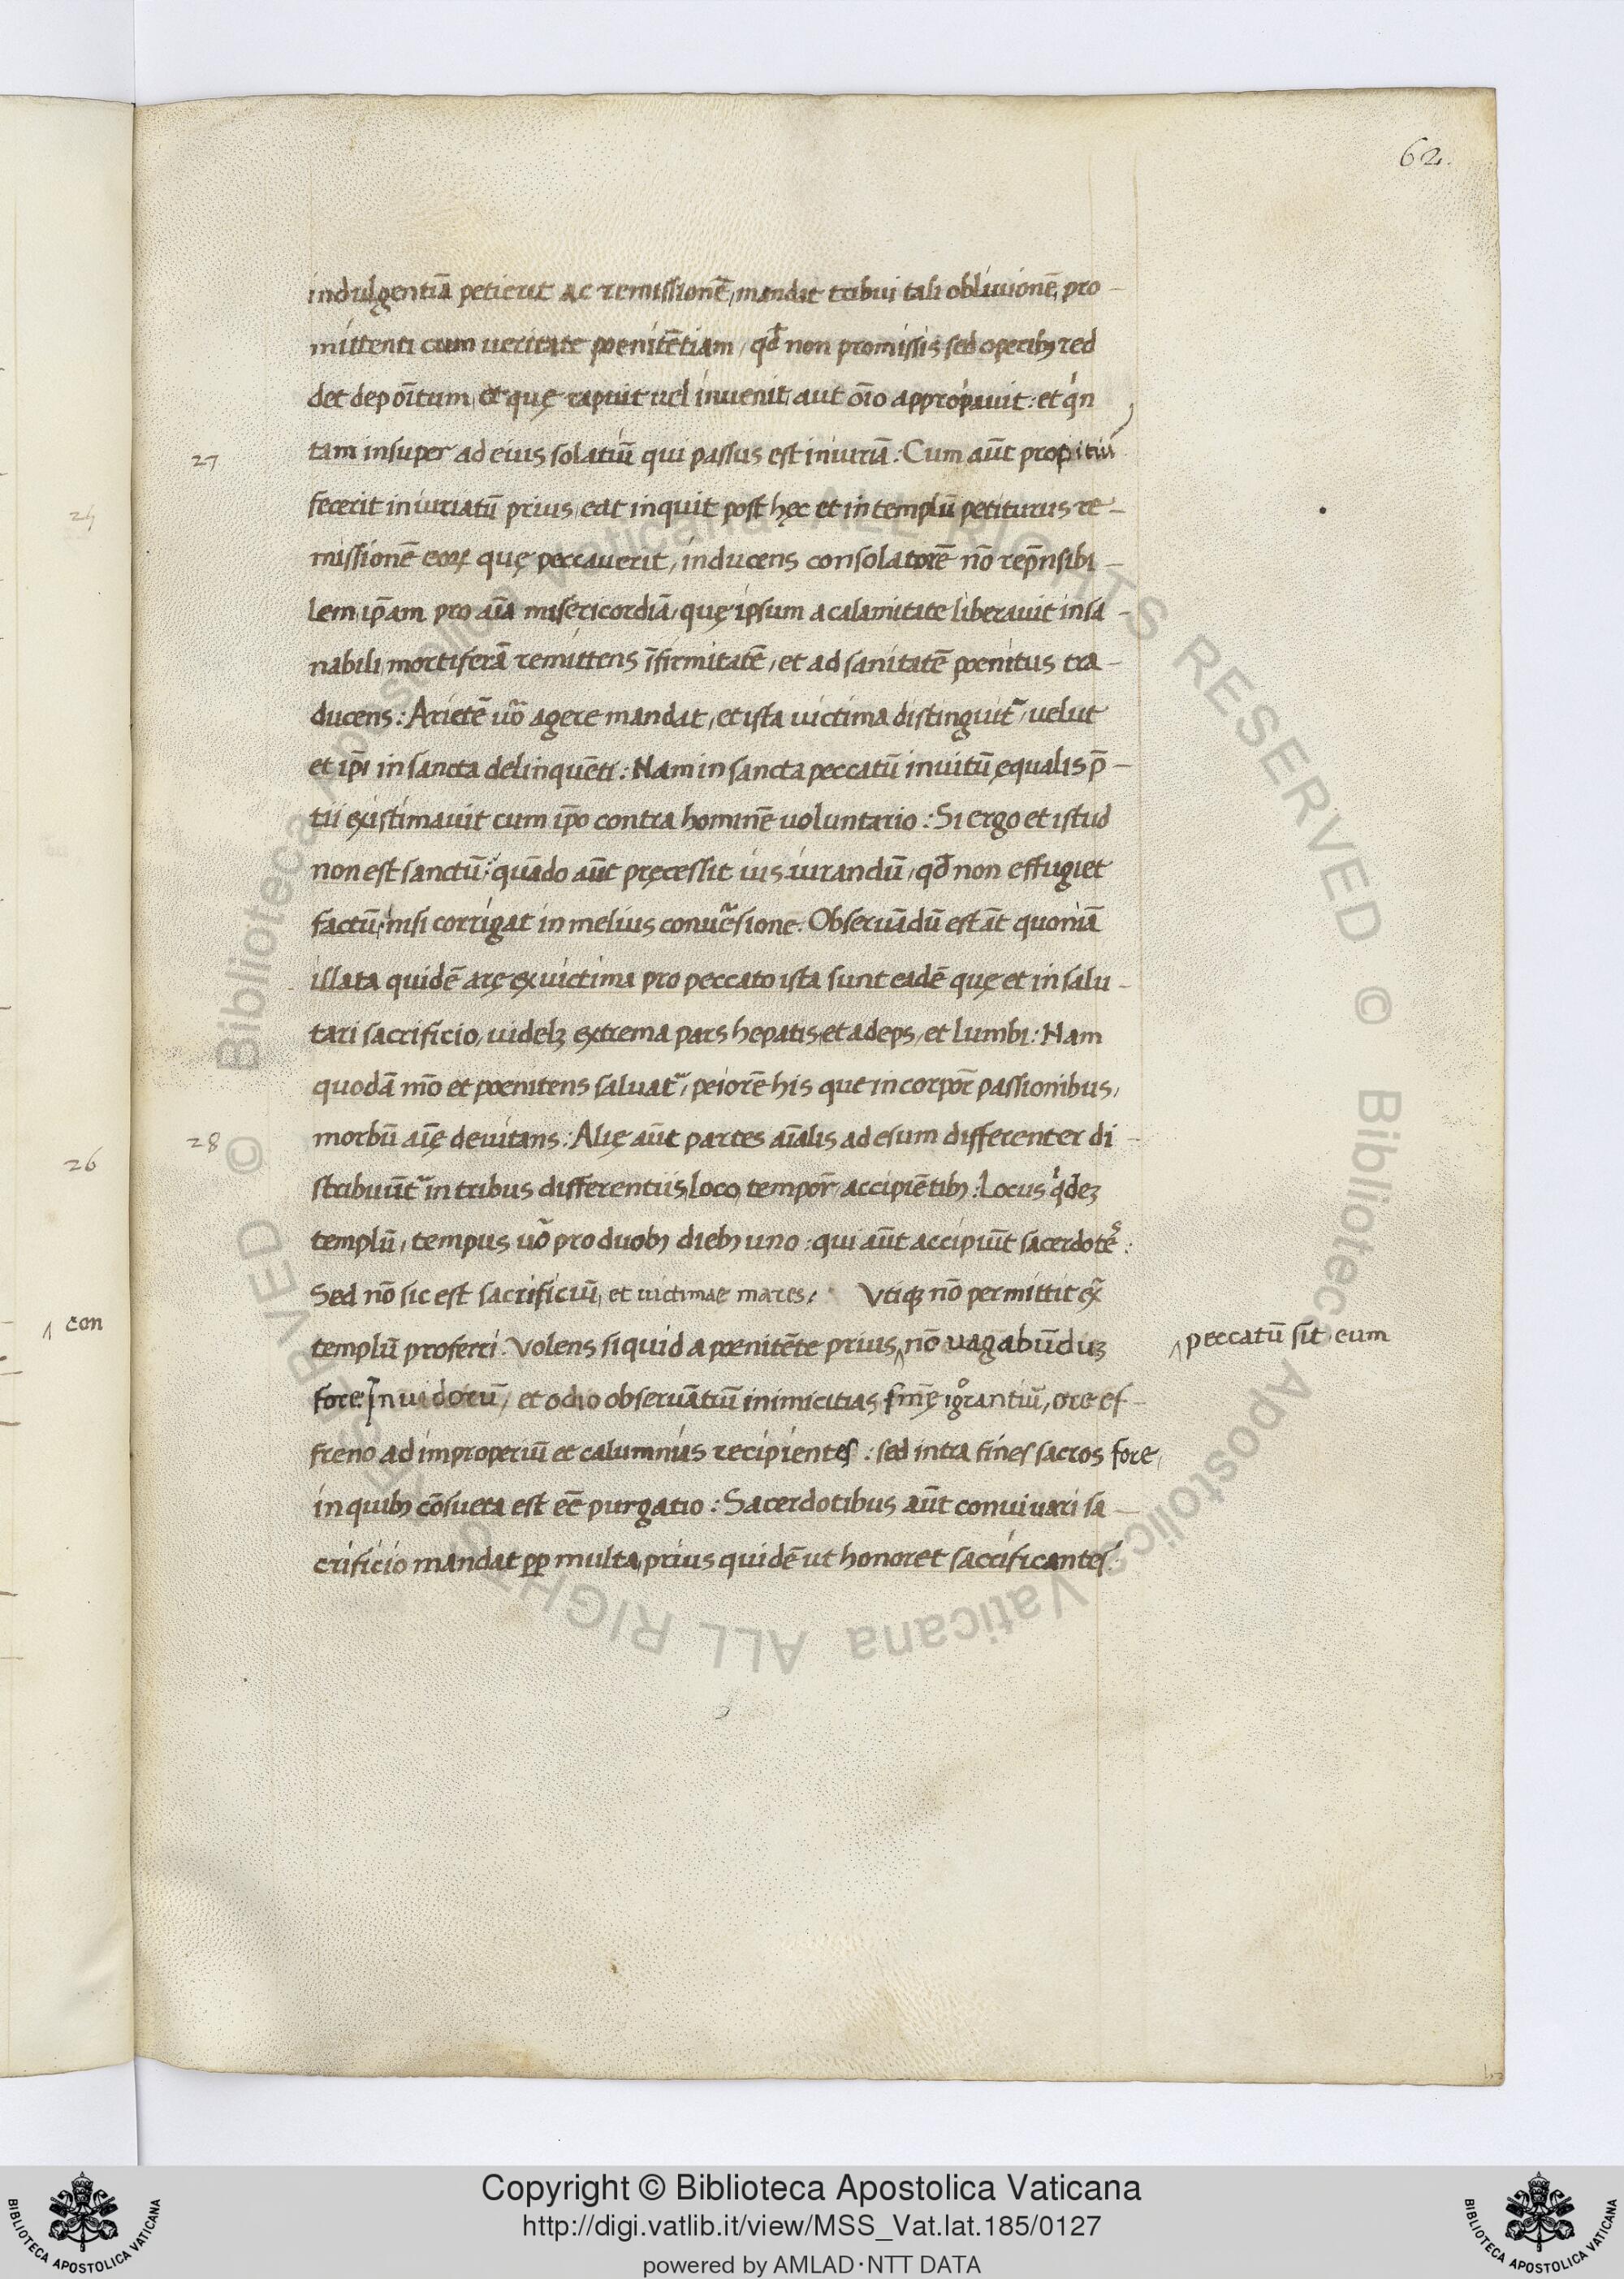 62.
indulgentiā petierit ac remissionē, mandat tribui tali obliuionē, pro-
mittenti cum ueritate poenitētiam, qđ non promissis sed operibꝫ red
det depōitum, et quę rapuit uel inuenit, aut oīo appropauit: et qn
27 tam insuper ad eius solatiū qui passus est iniuriā: Cum aūt propitiū
fecerit iniuriatū prius, eat inquit post hęc et in templū petiturus re-
missionē eoꝝ quę peccauerit, inducens consolatorē nō rep̄nsibi-
lem, ip̄am pro aīa misericordiā, quę ipsum a calamitate liberauit insa-
nabili, mortiferā remittens īfirmitatē, et ad sanitatē poenitus tra-
ducens: Arietē uō agere mandat, et ista uictima distinguit᷑, uelut
et ip̄i in sancta delinquēti: Nam in sancta peccatū inuitū equalis p̄-
tii existimauit cum ip̄o contra hominē uoluntario: Si ergo et istud
non est sanctū: quādo aūt pręcessit ius iurandū, qđ non effugiet
factū, nisi corrigat in melius conuēsione. Obseruādū est āt quoniā
illata quidē arę ex uictima pro peccato ista sunt eadē quę et in salu-
tari sacrificio, uidelꝫ extrema pars hepatis, et adeps, et lumbi: Nam
quodā mō et poenitens saluat᷑, peiorē his que in corpor̄ passionibus,
28 morbū aīę deuitans: Alię aūt partes aīalis ad esum differenter di-
stribuūt᷑ in tribus differentiis, loco, tempor̄, accipiētibꝫ: Locus qdeꝫ
templū, tempus uō pro duobꝫ diebꝫ uno: qui aūt accipiūt sacerdotēs:
Sed nō sic est sacrificiū, et uictimae mares. Vtiqꝫ nō permittit ex̄
templū proferri. Volens siquid a poenitēte prius ‸ nō uagabūduꝫ
‸ peccatū sit eum
fore. Inuidorū, et odio obseruātiū inimicitias fīmę igōrantiū, ore ef-
freno ad improperiū et calumnias recipientes: sed intra fines sacros fore,
in quibꝫ cōsueta est ec̄ purgatio: Sacerdotibus aūt conuiuari sa-
crificio mandat ꝓꝑ multa, prius quidē ut honoret sacrificantes.
24
26
‸ con
© Biblioteca Apostolica Vaticana ALL RIGHTS RESERVED © Biblioteca Apostolica Vaticana ALL RIGHTS RESERVED
Copyright © Biblioteca Apostolica Vaticana
http://digi.vatlib.it/view/MSS_Vat.lat.185/0127
powered by AMLAD·NTT DATA
BIBLIOTECA APOSTOLICA VATICANA
BIBLIOTECA APOSTOLICA VATICANA